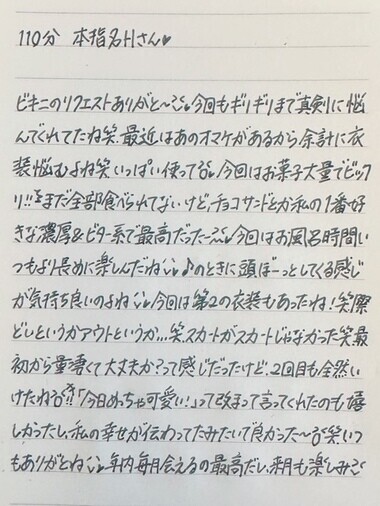 110分 本指名Hさん♥
ビキニのリクエストありがと〜♥今回もギリギリまで真剣に悩
んでくれてたね笑 最近はあのオマケがあるから余計に衣
装悩むよね笑 いっぱい使ってる♥今回はお菓子大量でビック
リ!!まだ全部食べられてないけど、チョコサードとか私の1番好
きな濃厚&ビター系で最高だった〜♥今回はお風呂時間い
つもより長めに楽しんだね♥♪のときに頭ぼーっとしてくる感じ
が気持ち良いのよね♥今回は第2の衣装もあったね!笑際
どしというかアウトというか...笑スカートがスカートじゃなかった笑最
初から量薄くて大丈夫か?って感じだったけど、2回目も全然い
けたね!!「今日めっちゃ可愛い!」って改まって言ってくれたのも嬉
しかったし、私の幸せが伝わってたみたいで良かった〜笑いつ
もありがとね♥年内毎月会えるの最高だし、来月も楽しみ